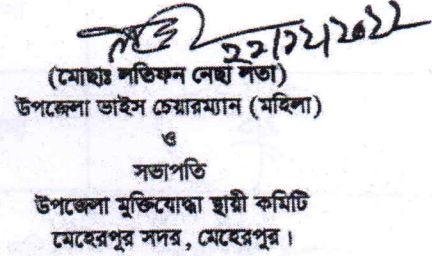 ২২/১২/২০২২
(মোছাঃ লতিফন নেছা লতা)
উপজেলা ভাইস চেয়ারম্যান (মহিলা)
ও
সভাপতি
উপজেলা মুক্তিযোদ্ধা স্থায়ী কমিটি
মেহেরপুর সদর, মেহেরপুর।